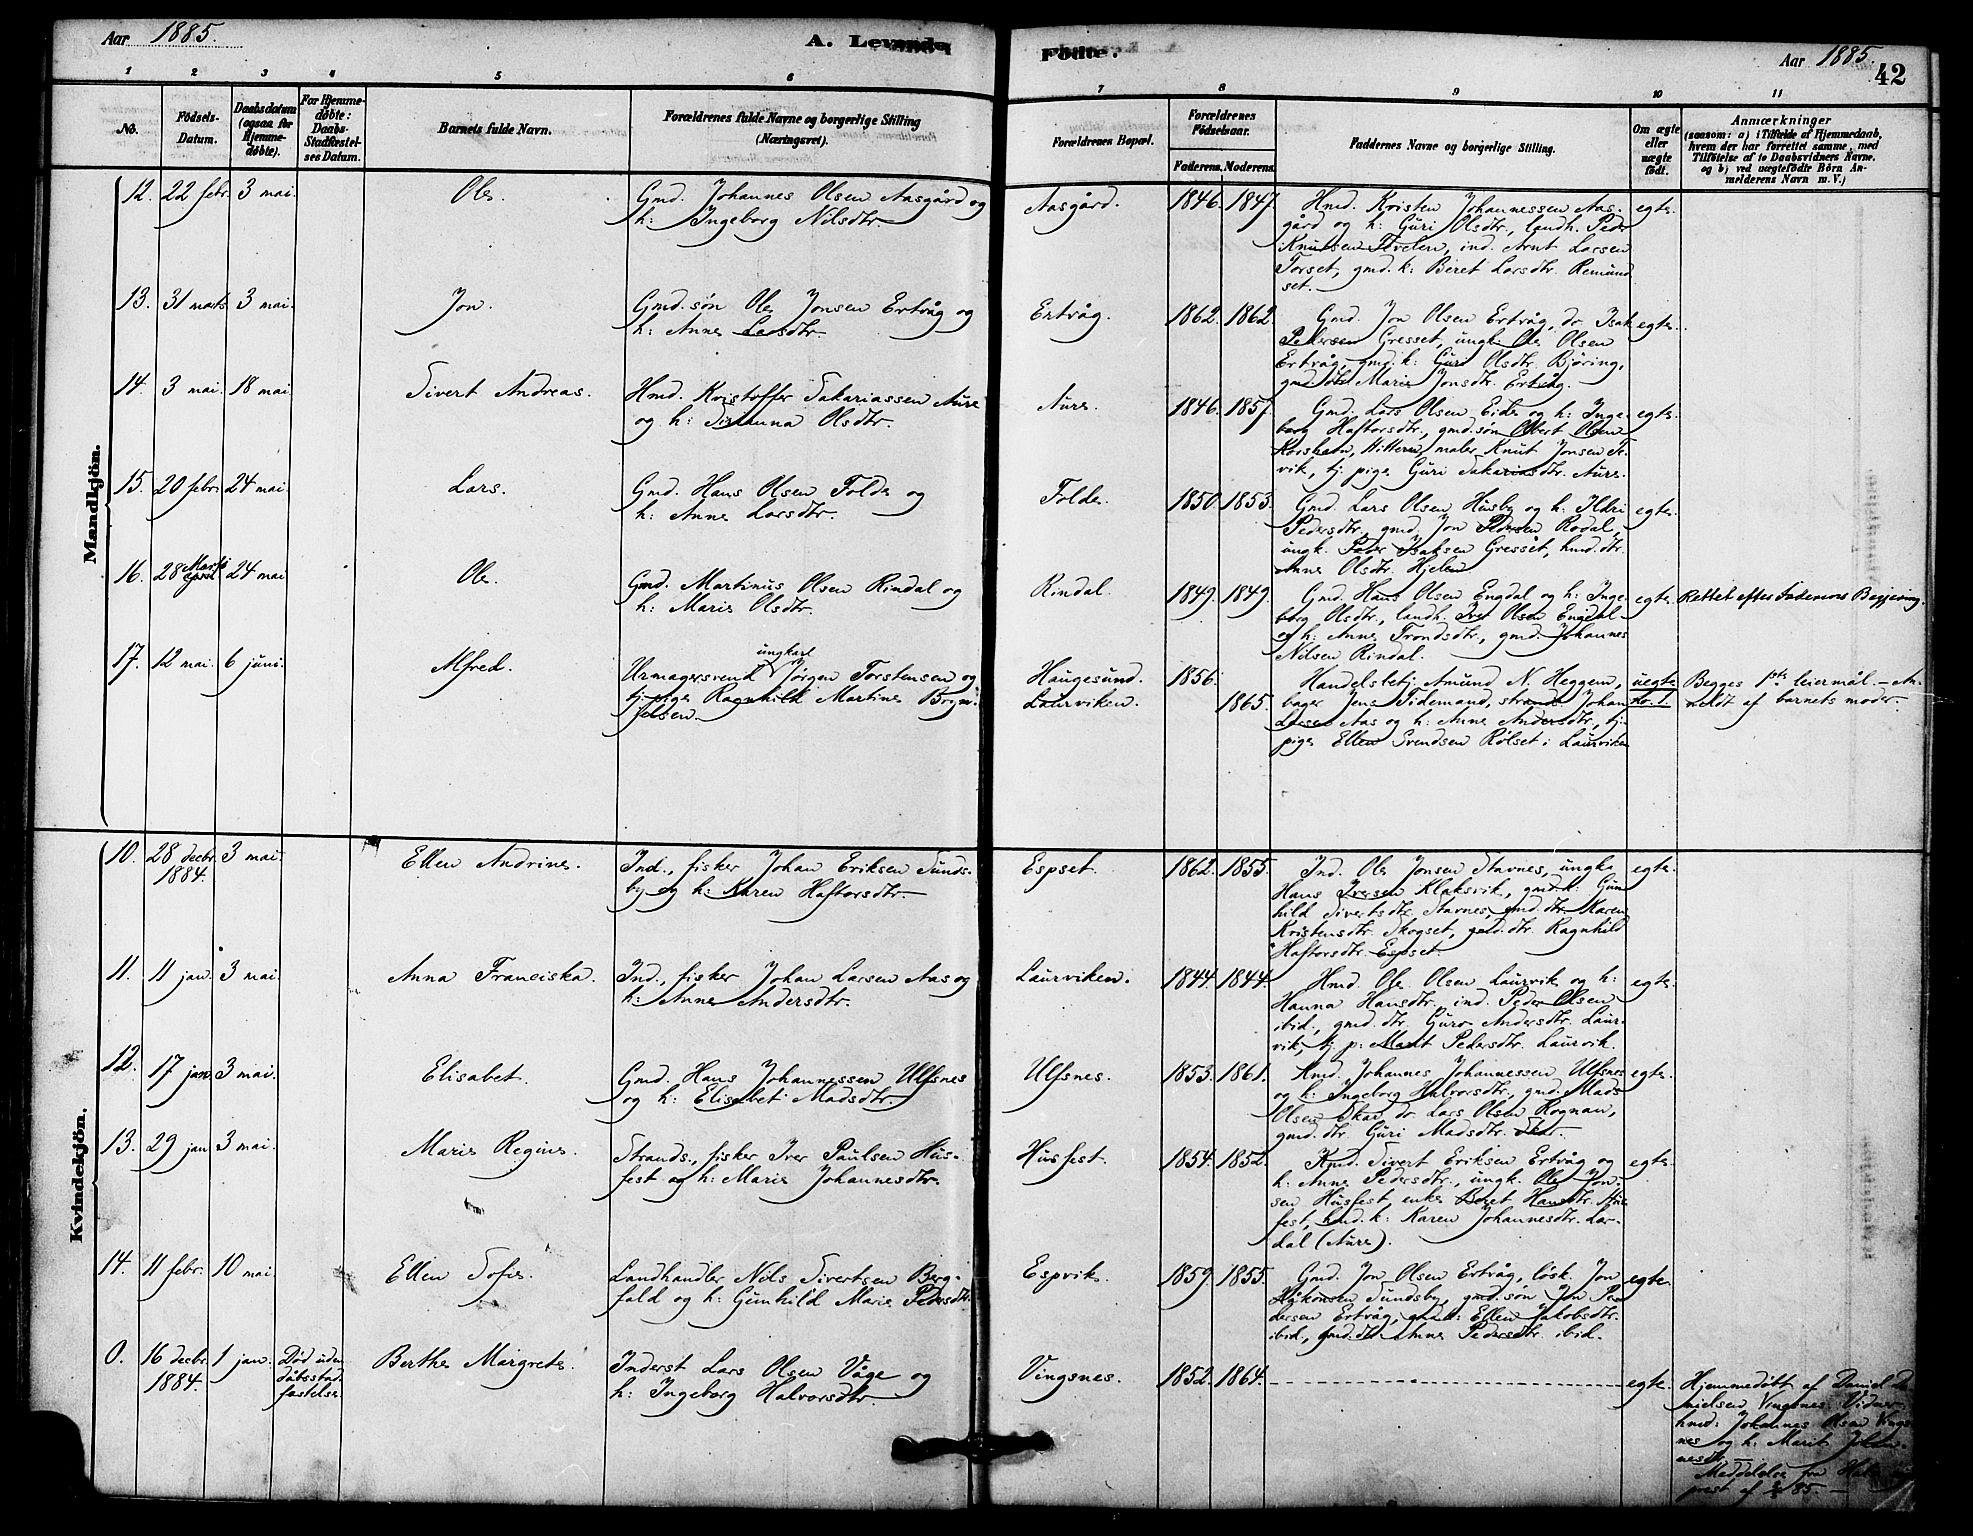 Aar 1885.
A. Levende
Födte.
Aar 1885.
42
1 2 3 4 5 6 7 8 9 10 11
No.
Födsels-
Datum.
Daabsdatum
(ogsaa for
Hjemme-
døbte).
For Hjemme-
døbte:
Daabs-
Stadfæstel-
ses Datum.
Barnets fulde Navn.
Forældrenes fulde Navne og borgerlige Stilling
(Næringsvei).
Forældrenes Bopæl.
Forældrenes
Födselsaar.
Faderens. Moderens.
Faddernes Navne og borgerlige Stilling.
Om ægte
eller
uægte
födt.
Anmærkninger
(saasom: a) i Tilfælde af Hjemmedaab,
hvem der har forrettet samme, med
Tilföielse af to Daabsvidners Navne,
og b) ved uægtefödte Börn An-
melderens Navn m. V.)
Mandkjön.
12. 22 febr. 3 mai. Ole.
Gmd. Johannes Olsen Aasgård og
h: Ingeborg Nilsdtr.
Aasgård. 1846. 1847
Hmd. Kristen Johannessen Aas-
gård og h: Guri Olsdtr., landh. Peder
Knutsen Tevelen, ind. Arnt Larsen
Torset, gmd. k: Beret Larsdtr. Remund
set.
egte.
13. 31 marts 3 mai. Jon.
Gmd. søn Ole Jonsen Ertvåg og
h: Anne Larsdtr.
Ertvåg. 1862. 1862.
Gmd. Jon Olsen Ertvåg, do Isak
Pedersen Gresset, ungk. Ole Olsen
Ertvåg, gmd. k: Guri Olsdtr. Bjøring,
gmd. dtr Marie Jonsdtr. Ertvåg.
egte.
14. 3 mai. 18 mai Sivert Andreas.
Hmd. Kristoffer Sakariassen Aure
og h: Simunna Olsdtr.
Aure. 1846. 1857.
Gmd. Lars Olsen Eide og h: Inge-
borg Haftorsdtr., gmd. søn Olbert Olsen
Korshavn, Hitteren, maler Knut Jonsen
vik, tj. pige Guri Sakariasdtr. Aure.
egte.
15. 20 febr. 24 mai. Lars.
Gmd. Hans Olsen Folde og
h: Anne Larsdtr.
Folde. 1850. 1853.
Gmd. Lars Olsen Husby og h: Ildri
Pedersdtr., gmd. Jon Pedersen Rodal,
ungk. Peder Isaksen Gresset, hmd. dtr.
Anne Olsdtr. Hjelen
egte.
16. 28 Marts april 24 mai Ole.
Gmd. Martinus Olsen Rindal og
h: Marie Olsdtr.
Rindal. 1849. 1849.
Gmd. Hans Olsen Engdal og h: Inge-
borg Olsdtr., landh. Iver Olsen Engdal
og h: Anne Trondsdtr., gmd. Johannes
Nilsen Rindal.
egte. Rettet efter Faderens Begjæring.
17. 12 mai. 6 juni. Alfred.
ungkarl
Urmagersvend Jørgen Torstensen og
tj. pige Ragnhild Martine Bryn-
jelsen.
Haugesund. 1856.
Laurviken. 1865.
Handelsbetj. Amund N. Heggem,
bager Jens Tidemand, strands. Johan
Larsen Aas og h: Anne Andersdtr., tj.
pige Ellen Svendsen Rølset i Laurviken
uegte
No. 1.
Begges 1ste leiermål. — An-
meldt af barnets moder.
Kvindekjön.
10. 28 decbr. 1884. 3 mai. Ellen Andrine.
Ind., fisker Johan Eriksen Sunds-
by og h: Karen Haftorsdtr.
Espset. 1862. 1855.
Ind. Ole Jonsen Stavnes, ungk.
Hans Iversen Klaksvik, gmd. k: Gun
hild Sivertsdtr. Stavnes, gmd. dtr. Karen
Kristensdtr. Skogset, gmd. dtr. Ragnhild
Haftorsdtr. Espset.
egte.
11. 11 jan. 3 mai. Anna Franciska.
Ind., fisker Johan Larsen Aas og
h: Anne Andersdtr.
Laurviken. 1844. 1844.
Hmd. Ole Olsen Laurvik og h:
Hanna Hansdtr., ind. Peder Olsen
ibid., gmd. dtr. Guro Andersdtr. Laur-
vik, tj. p: Marit Pedersdtr. Laurvik.
egte.
12. 17 jan 3 mai. Elisabet.
Gmd. Hans Johannessen Ulfsnes
og h: Elisabet Madsdtr.
Ulfsnes. 1853. 1861.
Hmd. Johannes Johannessen Ulfsnes
og h: Ingeborg Halvorsdtr., gmd. Mads
Olsen Skar, do Lars Olsen Rognan,
gmd. dtr. Guri Madsdtr. Skar.
egte.
13. 29 jan 3 mai. Marie Regine.
Strands., fisker Iver Paulsen Hus-
fest og h: Marie Johannesdtr.
Husfest. 1854. 1852.
Hmd. Sivert Eriksen Ertvåg og
h: Anne Pedersdtr., ungk. Ole Jon-
sen Husfest, enke Beret Hansdtr. Hus-
fest, hmd. k: Karen Johannesdtr. Lar-
dal (Aure).
egte.
14. 11 febr. 10 mai. Ellen Sofie.
Landhandler Nils Sivertsen Berg-
fald og h: Gunhild Marie Pedersdtr.
Espvik. 1859. 1855.
Gmd. Jon Olsen Ertvåg, løsk. Jon
Håkonsen Sundsby, gmd. søn Jon Pe-
dersen Ertvåg, gmd. k: Ellen Jakobsdtr.
ibid, gmd. dtr. Anne Pedersdtr. ibid.
egte.
0. 16 decbr. 1884. 1 jan. Død uden
dåbsstad-
fæstelse
Berthe Margrete.
Inderst Lars Olsen Våge og
h: Ingeborg Halvorsdtr.
Vingsnes. 1852. 1864.
egte.
Hjemmedøbt af Daniel Da-
nielsen Vingsnes. Vidner:
hmd: Johannes Olsen Vings-
nes og h: Marit Johan-
nesdtr.
Meddelelse fra
prest af 85.